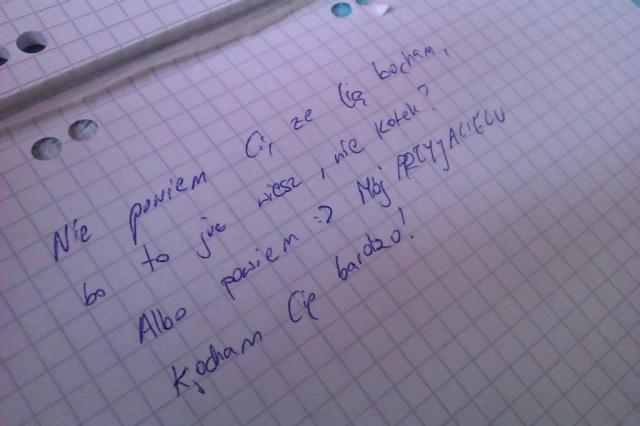 Nie powiem Ci, ze Cię bocham,
bo to juz wiesz, nie kotek?
Albo powiem :) Mój PRZYJACIELU
Kocham Cię bardzo!